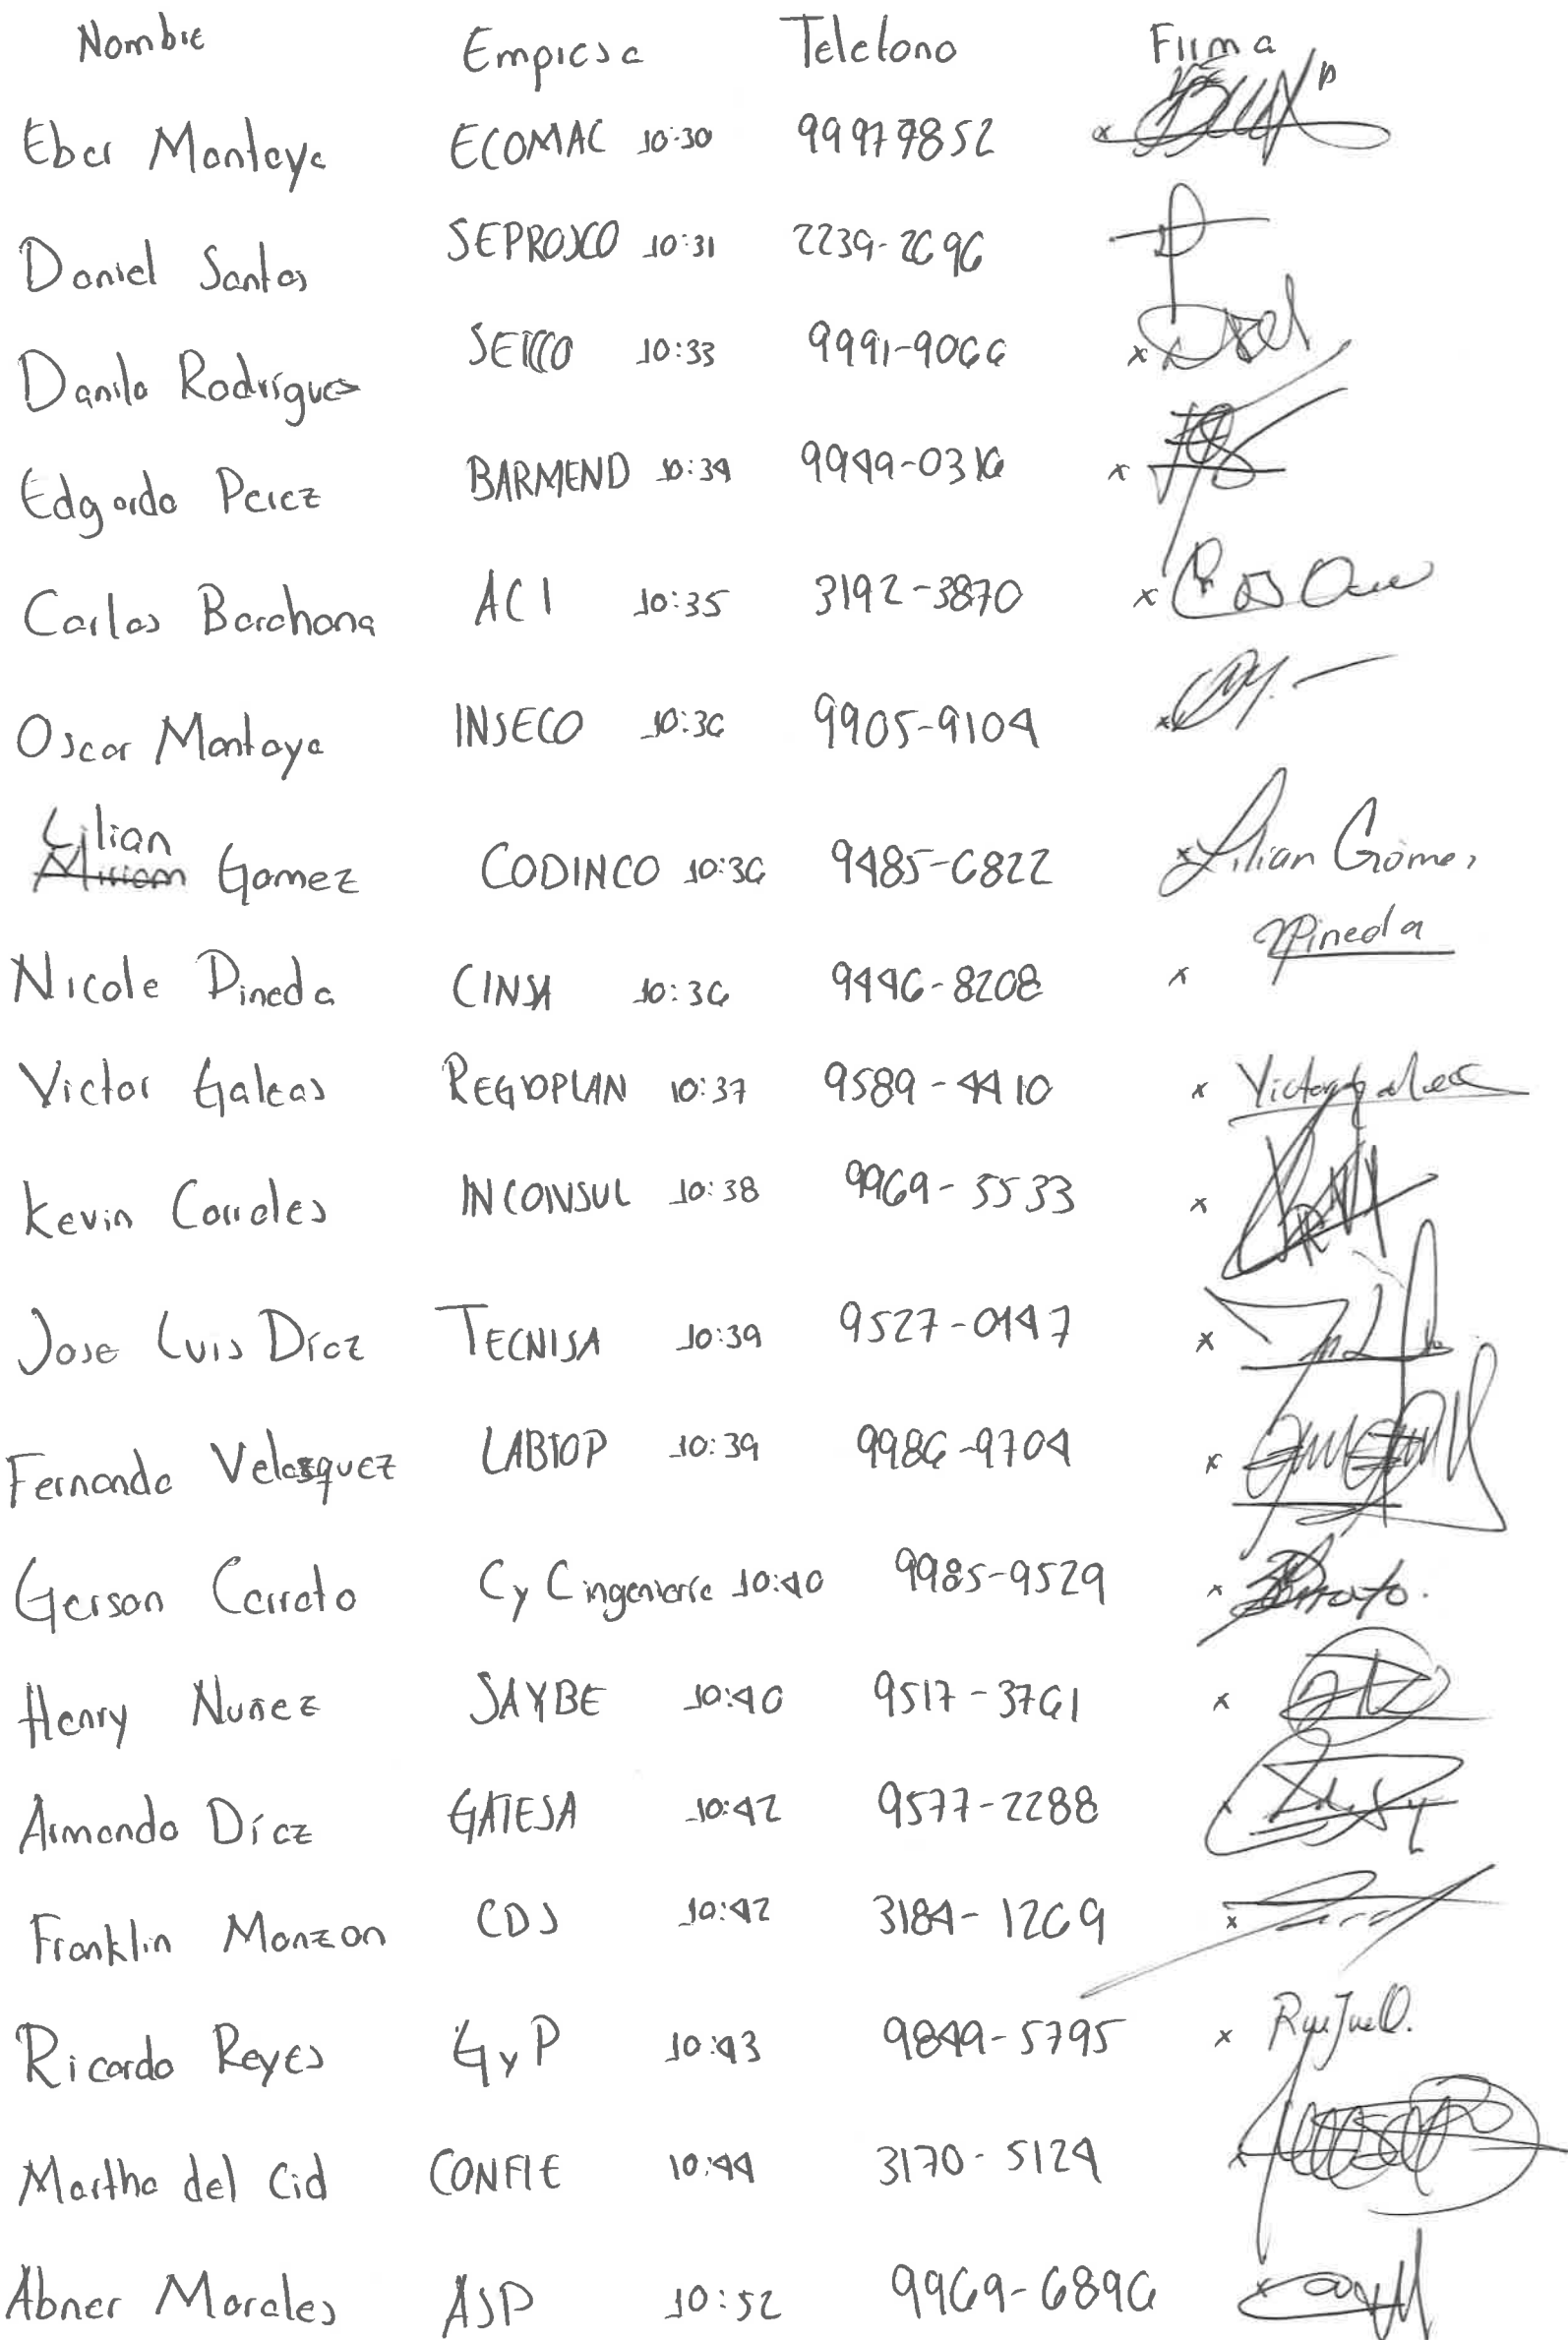 Nombre Empresa Telefono Firma
Eber Montoya ECOMAC 10:30 99979852
Daniel Santos SEPROSCO 10:31 2239-2696
Danilo Rodríguez SEICCO 10:33 9991-9066
Edgardo Perez BARMEND 10:34 9949-0316
Carlos Barahona ACI 10:35 3192-3870
Oscar Montoya INSECO 10:36 9905-9104
Lilian Gomez CODINCO 10:36 9485-6822 Lilian Gómez
Nicole Pineda CINSA 10:36 9446-8208 NPineda
Victor Galeas REGIOPLAN 10:37 9589-4410 Victor Galeas
Kevin Corrales INCONSUL 10:38 9969-5533
Jose Luis Díaz TECNISA 10:39 9527-0147
Fernando Velasquez LABTOP 10:39 9986-9704
Gerson Cerrato CyC ingeniería 10:40 9985-9529
Henry Nuñez SAYBE 10:40 9517-3761
Armando Díaz GATESA 10:42 9577-2288
Franklin Monzon CDS 10:42 3184-1269
Ricardo Reyes GyP 10:43 9849-5795
Martha del Cid CONFIE 10:44 3170-5124
Abner Morales ASP 10:52 9969-6896